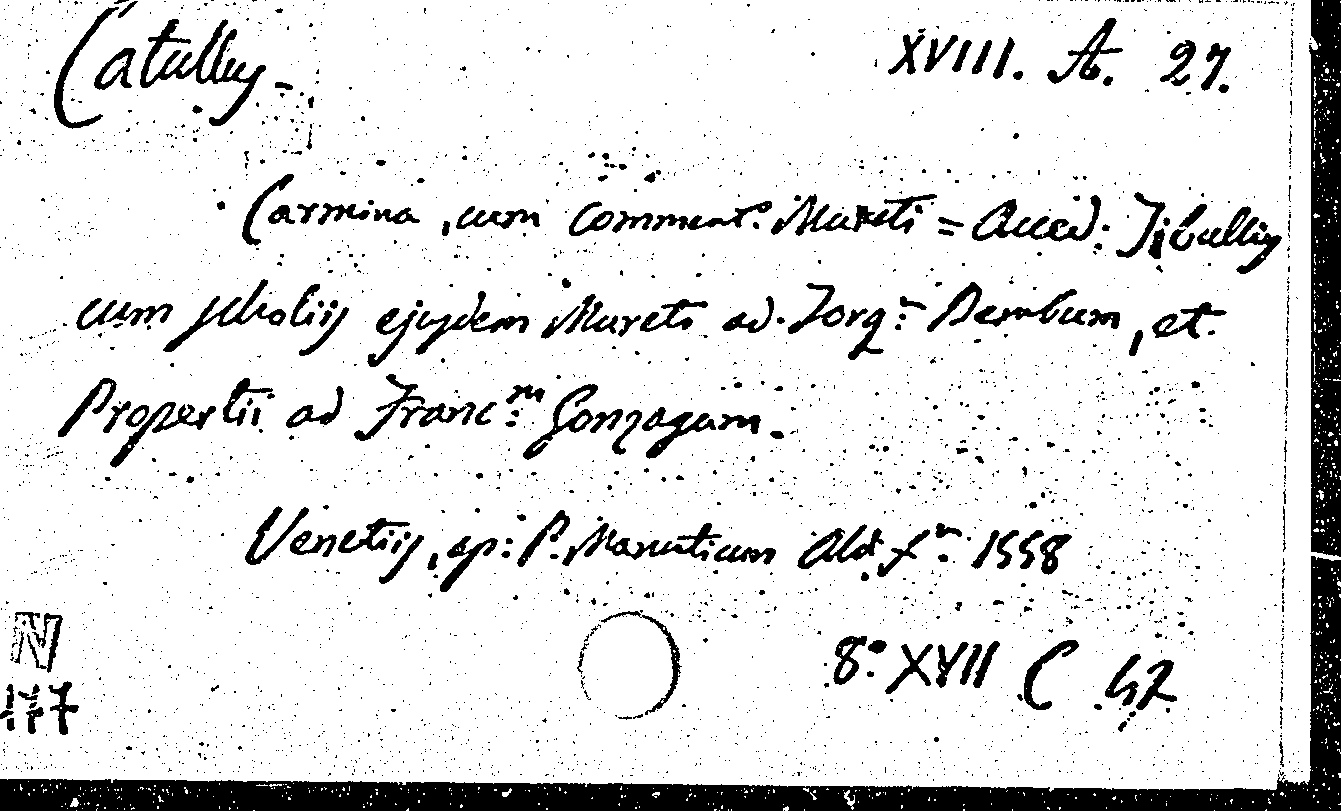 Catullus. XVIII. A. 27.
Carmina, cum Comment.º Mureti = Acced: Tibullus
cum scholiis ejusdem Mureti ad Torq.m Bembum, et
Propertii ad Franc.m Gonzagam.
Venetiis, ap: P. Manutium Ald. f.m 1558
8.º XVII C 42
N
177